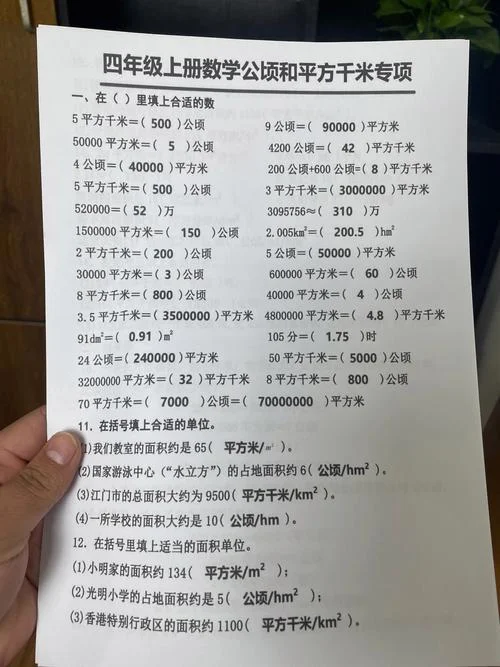 四年级上册数学公顷和平方千米专项
一、在（ ）里填上合适的数
5 平方千米=( 500 )公顷 9 公顷=( 90000 )平方米
50000 平方米=( 5 )公顷 4200 公顷=( 42 )平方千米
4 公顷=( 40000 )平方米 200 公顷+600 公顷=( 8 )平方千米
5 平方千米=( 500 )公顷 3 平方千米=( 3000000 )平方米
520000=( 52 )万 3095756≈( 310 )万
1500000 平方米=( 150 )公顷 2.005km²=( 200.5 )hm²
2 平方千米=( 200 )公顷 5 公顷=( 50000 )平方米
30000 平方米=( 3 )公顷 600000 平方米=( 60 )公顷
8 平方千米=( 800 )公顷 40000 平方米=( 4 )公顷
3.5 平方千米=( 3500000 )平方米 4800000 平方米=( 4.8 )平方千米
91dm²=( 0.91 )m² 105 分=( 1.75 )时
24 公顷=( 240000 )平方米 50 平方千米=( 5000 )公顷
32000000 平方米=( 32 )平方千米 8 平方千米=( 800 )公顷
70 平方千米=( 7000 )公顷=( 70000000 )平方米
11. 在括号填上合适的单位。
(1)我们教室的面积约是 65( 平方米/㎡ )。
(2)国家游泳中心（“水立方”）的占地面积约 6( 公顷/hm² )。
(3)江门市的总面积大约为 9500( 平方千米/km² )。
(4)一所学校的面积大约是 10( 公顷/hm )。
12. 在括号里填上适当的面积单位。
(1)小明家的面积约 134( 平方米/m² );
(2)光明小学的占地面积约是 5( 公顷/hm² );
(3)香港特别行政区的面积约 1100( 平方千米/km² )。